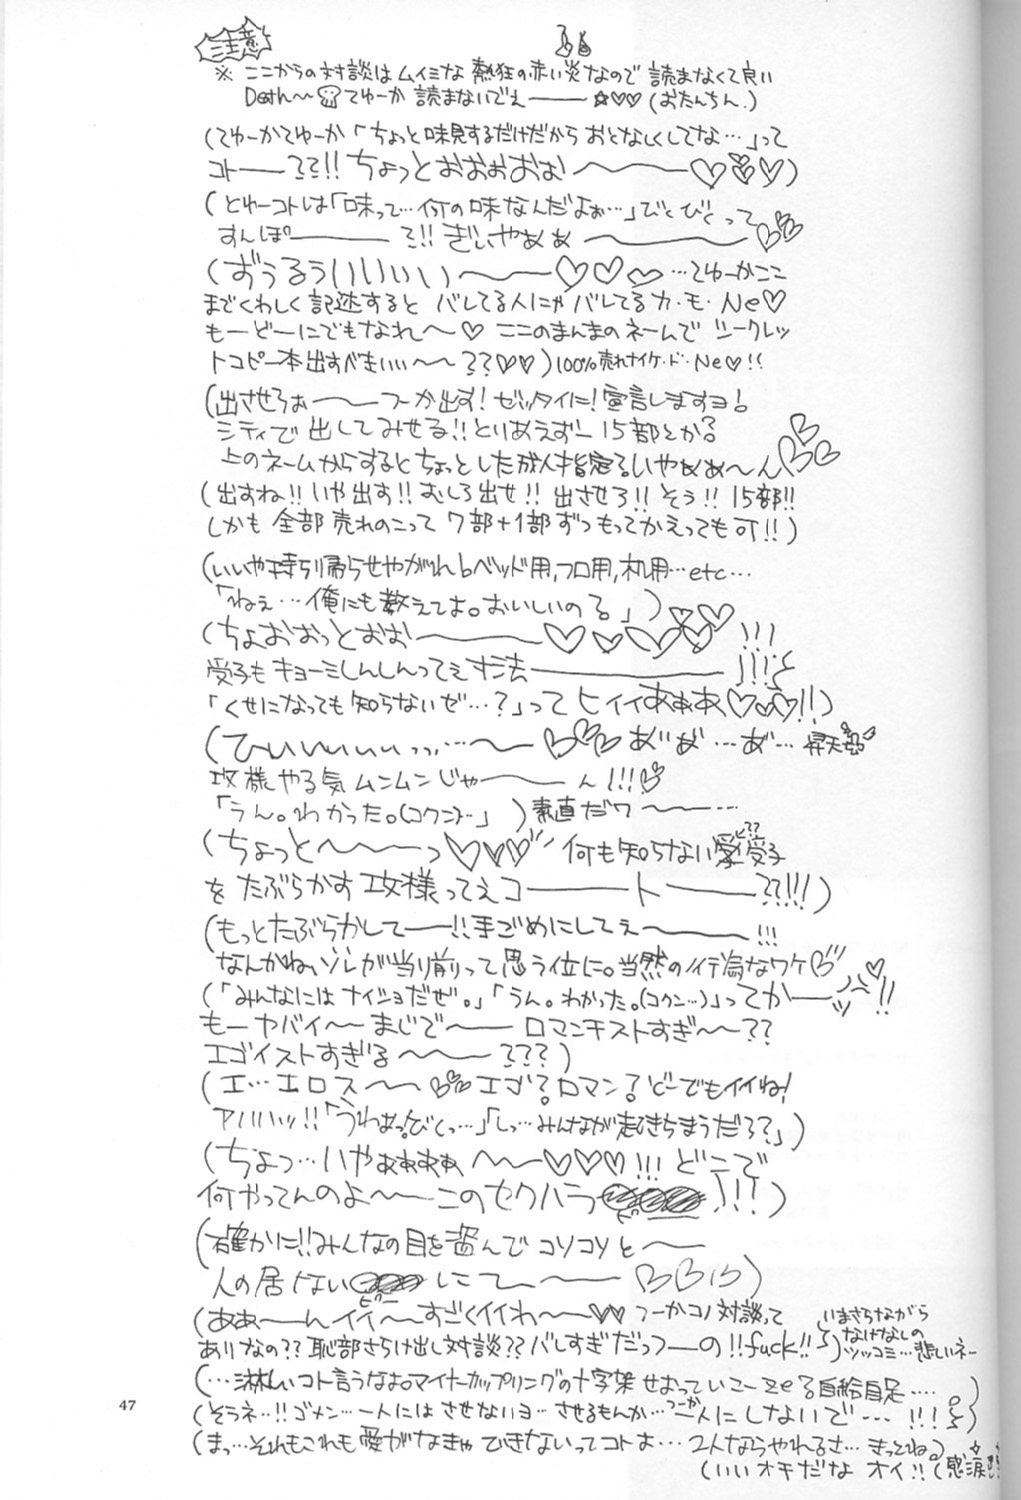 注意
※ ここからの対談はムイミな熱狂の赤い炎なので 読まなくて良い
Death〜 てゆーか 読まないでえ――― ☆♡♡ (おたんちん.)
(てゆーかてゆーか「ちょっと味見するだけだから おとなしくしてな…」って
コト――??!! ちょっとおおぉおぉ 〜――♡♡♡)
(とゆーコトは「味って…何の味なんだよぉ…」びくびくって
すんぽ――― ?!! ぎぃやぁぁ 〜―――♡♡
(ずうるうぃいいぃぃ 〜――♡♡♡ …てゆーかここ
までくわしく 記述すると バレてる人にゃ バレてる カ・モ・Ne♡
もーどーにでもなれ〜♡ ここのまんまのネームで シークレッ
トコピー本出すべきぃぃ〜〜??♡♡) 100%売れナイケ・ド・Ne♡!!
(出させろぉ〜――つーか出す! ゼッタイに! 宣言しますヨ!
シティで 出してみせる!! とりあえずー 15部とか?
上のネームからするとちょっとした成人指定? いやぁぁぁ〜ん♡♡♡
(出すね!! いや出す!! むしろ出せ!! 出させろ!! そう!! 15部!!
しかも 全部 売れのこって 7部+1部ずつもってかえっても可!!)
(いいや持ち帰らせやがれ ベッド用,フロ用,机用…etc…
「ねぇ…俺にも教えてよ。おいしいの?」)♡♡
(ちょおおっとおお――〜♡♡♡♡ !!!
受子もキョーミしんしんってぇ寸法――――― !!!
「くせになっても知らないぜ…?」って ヒィィあぁぁあ♡♡♡!!)
(ひぃいぃぃぃっっ…〜― ♡♡♡ あ゛ あ゛…あ゛…昇天
攻様やる気 ムンムンじゃ〜――ん!!!♡
「うん。わかった。(コクン)…」 ) 素直だワ 〜――…
(ちょっと〜〜〜っ♡♡♡ 何も知らない愛受子??
を たぶらかす 攻様ってえコ―――ト―――??!!!)
(もっとたぶらかして――!! 手ごめにしてえ〜――― !!!
なんかね、ソレが当り前って思う位に。当然の行為なワケ♡
(「みんなにはナイショだぜ。」「うん。わかった。(コクン…)」ってか――♡!!
もーヤバイ〜〜 まじで〜―― ロマンチストすぎ〜〜??
エゴイストすぎる〜〜― ???)
(エ…エロス〜〜 ♡♡ エゴ? ロマン? どーでもイイね!
アハハハッ!!「うわぁっ?びくっ…」「しっ…みんなが起きちまうだろ?」)
(ちょっ…いやぁぁぁぁぁ 〜―〜♡♡♡!!! どこで
何やってんのよ〜―― このセクハラ ピー !!!)
(確かに!! みんなの目を盗んで コソコソと〜――
人の居ない ピー にて〜 〜―― ♡♡♡)
(ああ〜―んイイ〜〜すごくイイわ〜――♡♡ つーかコノ対談って
ありなの?? 恥部さらけ出し対談?? バレすぎだっつーの!! fuck!!)
いまさらながら
なけなしの
ツッコミ…悲しいネー
(…淋しいコト言うなよ。マイナーカップリングの十字架 せおっていこーZe? 自給自足…)
(そうネ…!! ゴメン…一人には させないヨ… させるもんか… つーか 一人にしないで… !!!)
(まっ…それもこれも 愛がなきゃ できないってコトよ… 2人ならやれるさ… きっとね。)
(いいオチだな オイ!! (感涙)
47